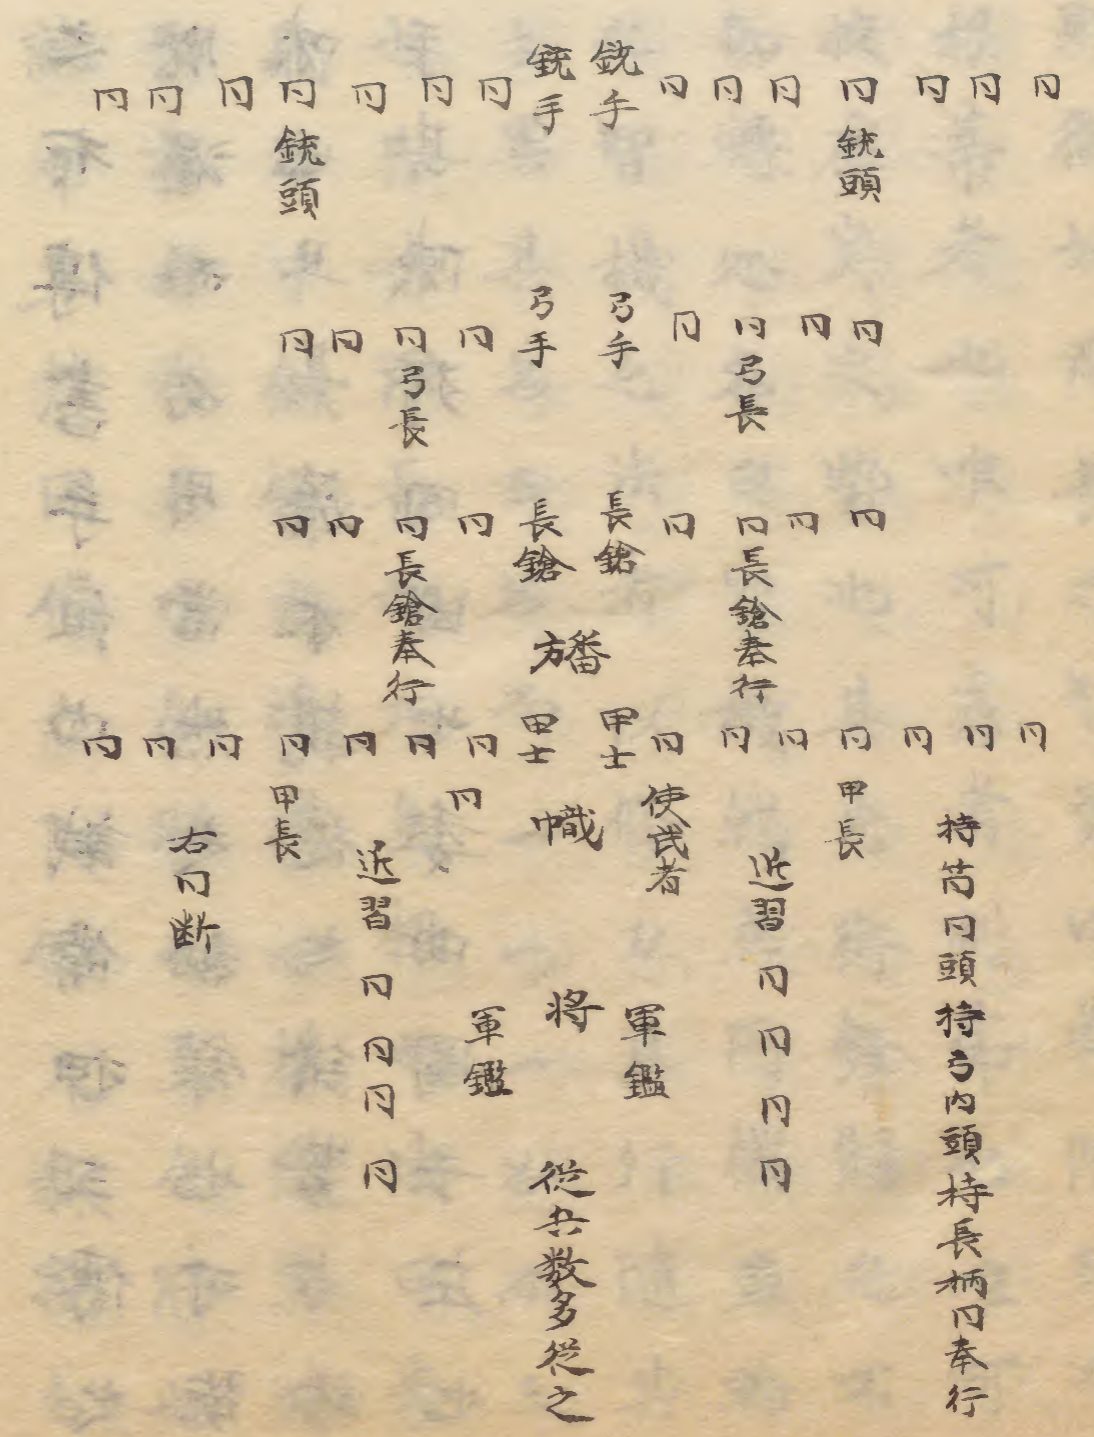 同同同同同同同銃手銃手同同同同同同同
銃頭
銃頭
同同同同弓手弓手同同同同
弓長
弓長
同同同同長鎗長鎗同同同同
長鎗奉行
長鎗奉行
旙
同同同同同同同甲士甲士同同同同同同同
持筒同頭持弓同頭持長柄同奉行
甲長
近習同同同同
使武者
幟
同
軍鑑
将
軍鑑
従兵数多従之
近習同同同同
甲長
右同断